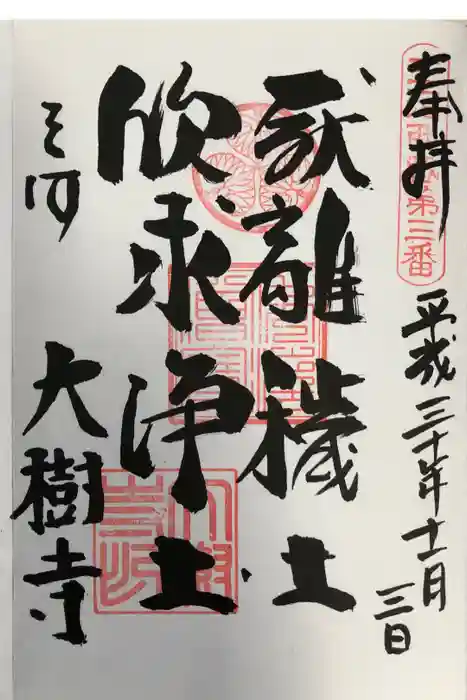 奉拝
第三番
平成三十年十一月
三日
厭離穢土
欣求浄土
三河
大樹寺